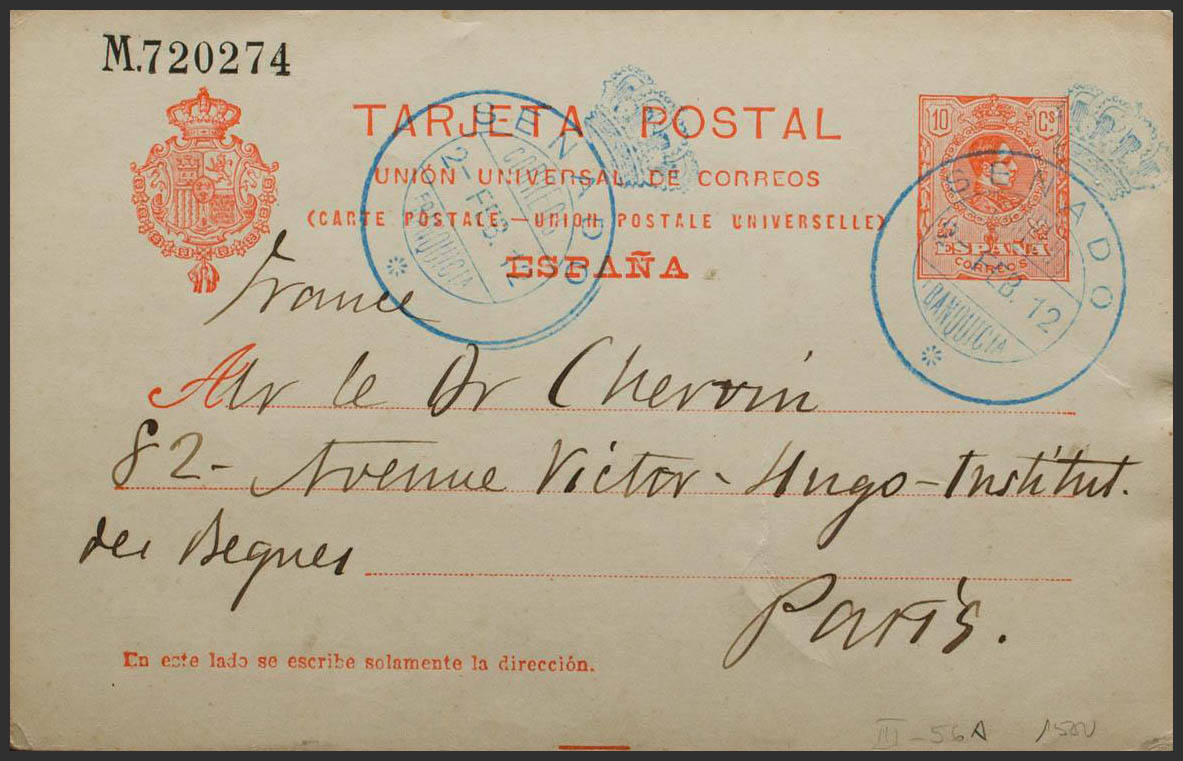 M.720274
TARJETA POSTAL
UNIÓN UNIVERSAL DE CORREOS
(CARTE POSTALE.—UNION POSTALE UNIVERSELLE)
ESPAÑA
10 Cs
ESPAÑA
CORREOS
SENADO
CORREOS
2 FEB. 12
FRANQUICIA
SENADO
FEB. 12
FRANQUICIA
France
A Mr le Dr Chervin
82- Avenue Victor-Hugo-Institut.
des Begues
París.
En este lado se escribe solamente la dirección.
III-56A